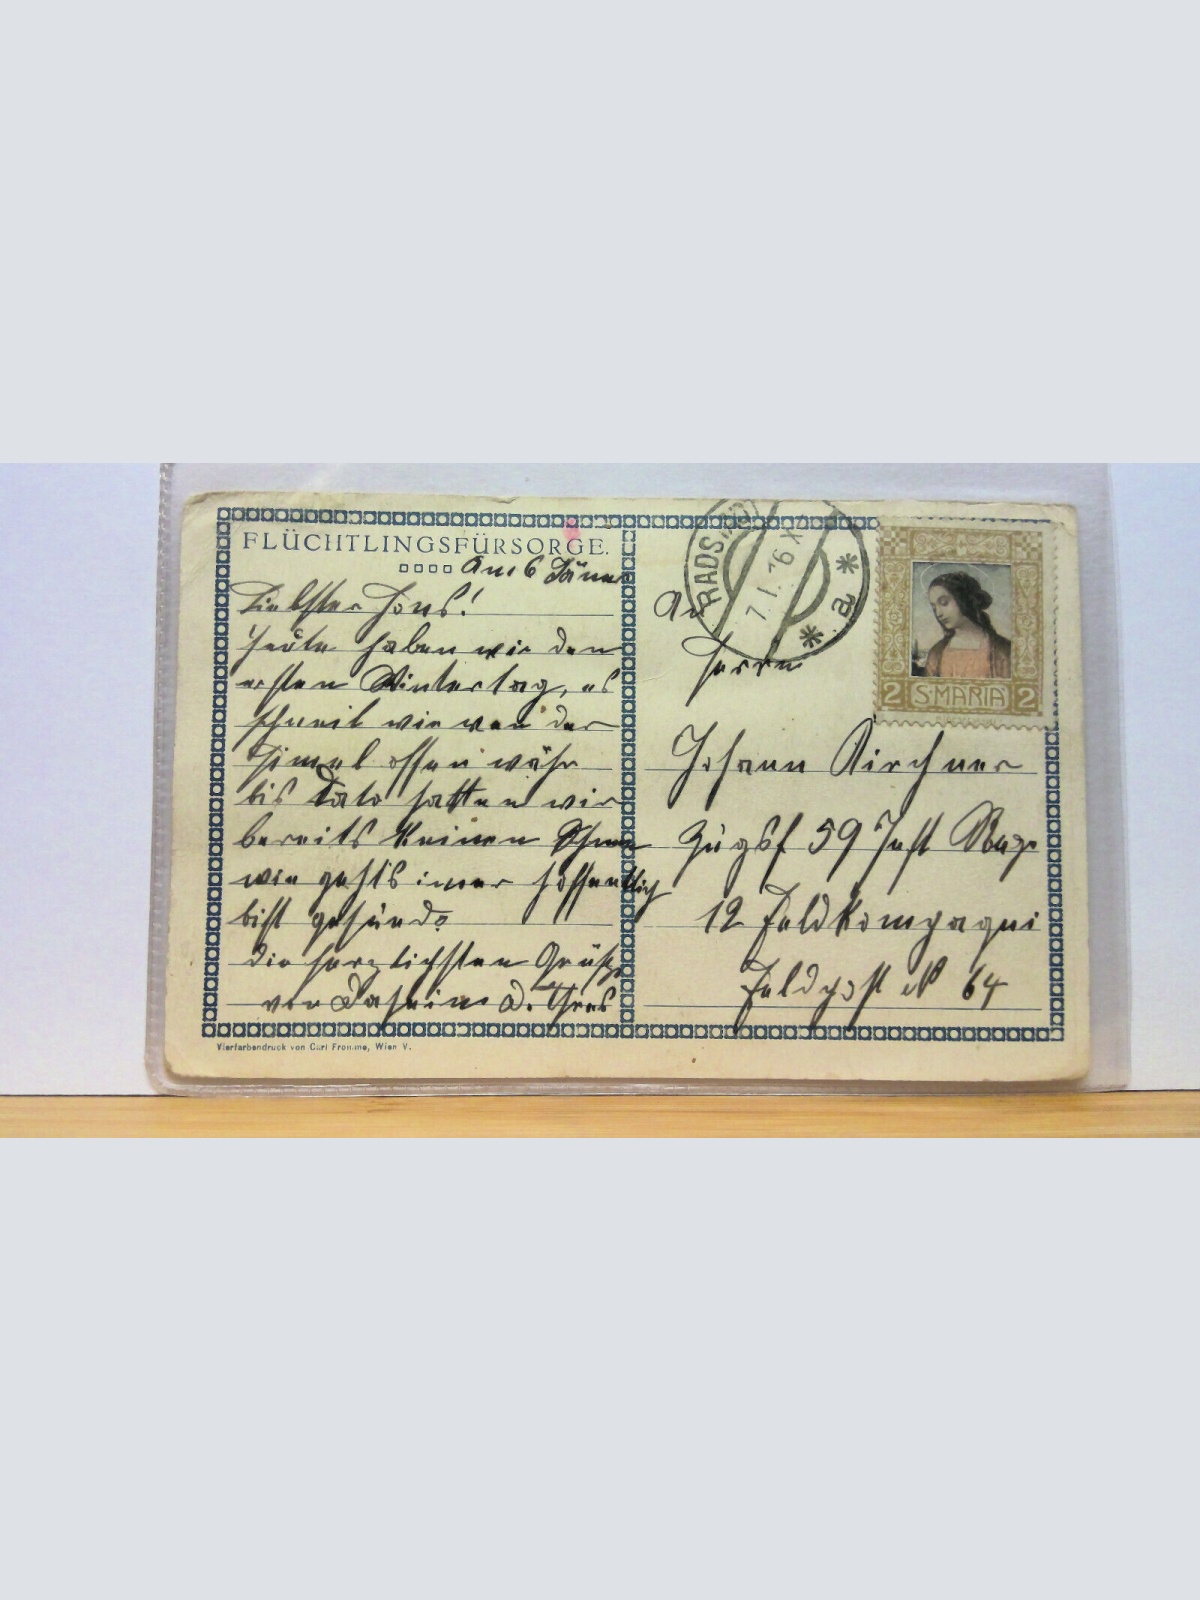 FLÜCHTLINGSFÜRSORGE.
Am 6 Jäner
Liebster Hans!
Heute haben wir den
ersten Wintertag, es
schneit wie wen der
Himel offen währ
bis Dato hatten wir
bereits keinen Schnee
wie gehts imer hoffentlich
bist gesund.
die herzlichsten Grüße
von Daheim
RADSTADT
7.I.16 X
* a *
2 S·MARIA 2
An
Herrn
Johann Kirchner
Zugsf 59 Inft Reg.
12 Feldkompagni
Feldpost N 64
Vierfarbendruck von Carl Fromme, Wien V.